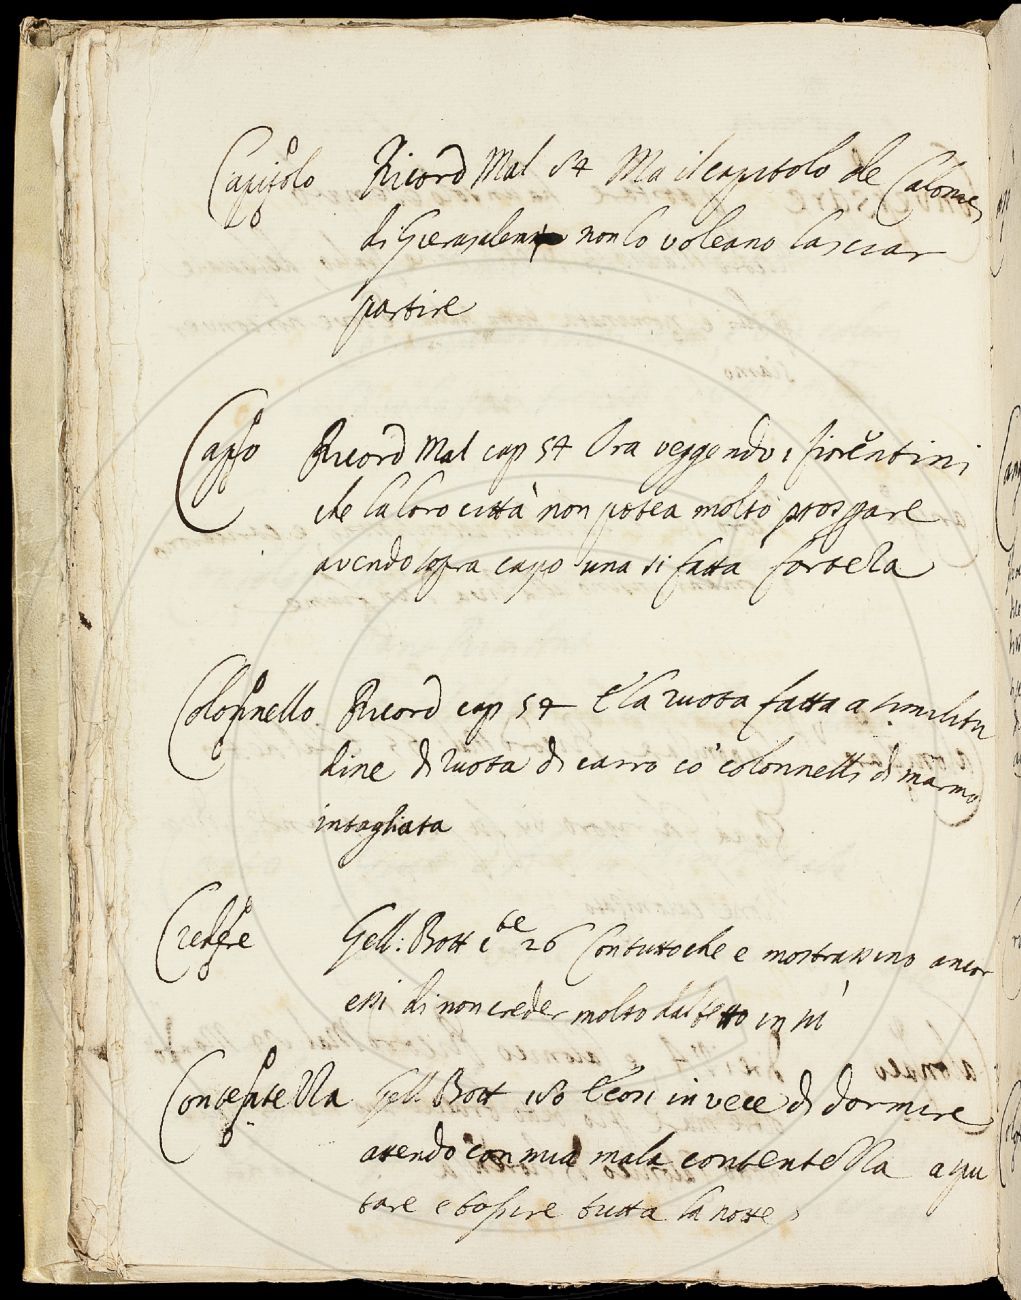 Capitolo Ricord Mal 54 Ma il capitolo de Calonaci
di Gierusalem non lo voleano lasciar
partire
Capo Ricord Mal cap 54 Ora veggendo i fiorentini
che la loro città non potea molto prosperare
avendo sopra capo una si fatta fortezza
Colonnello Ricord cap 54 E la ruota fatta a similitu
dine di ruota di carro cō colonnelli di marmo
intagliata
Credere Gell: Bott c 26 Contuttoche e mostrassino ancor
essi di non creder molto dal tetto in sù
Contentezza Gell Bott 180 E cosi in vece di dormire
avendo con mia mala contentezza a spu
tare e tossire tutta la notte